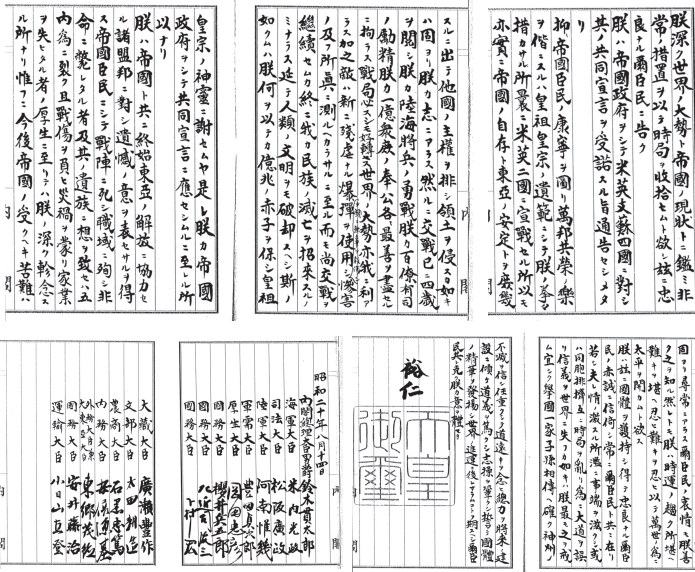 朕深ク世界ノ大勢ト帝國ノ現狀トニ鑑ミ非
常ノ措置ヲ以テ時局ヲ收拾セムト欲シ茲ニ忠
良ナル爾臣民ニ告ク
朕ハ帝國政府ヲシテ米英支蘇四國ニ對シ
其ノ共同宣言ヲ受諾スル旨通告セシメタ
リ
抑々帝國臣民ノ康寧ヲ圖リ萬邦共榮ノ樂
ヲ偕ニスルハ皇祖皇宗ノ遺範ニシテ朕ノ拳々
措カサル所曩ニ米英二國ニ宣戰セル所以モ
亦實ニ帝國ノ自存ト東亞ノ安定トヲ庶幾
內
閣
スルニ出テ他國ノ主權ヲ排シ領土ヲ侵スカ如キ
ハ固ヨリ朕カ志ニアラス然ルニ交戰已ニ四歲
ヲ閱シ朕カ陸海將兵ノ勇戰朕カ百僚有司
ノ勵精朕カ一億衆庶ノ奉公各々最善ヲ盡セル
ニ拘ラス戰局必スシモ好轉セス世界ノ大勢亦我ニ利ア
ラス加之敵ハ新ニ殘虐ナル爆彈ヲ使用シテ頻ニ無辜ヲ殺傷シ慘害
ノ及フ所眞ニ測ルヘカラサルニ至ル而モ尙交戰ヲ
繼續セムカ終ニ我カ民族ノ滅亡ヲ招來スルノ
ミナラス延テ人類ノ文明ヲモ破却スヘシ斯ノ
如クムハ朕何ヲ以テカ億兆ノ赤子ヲ保シ皇祖
皇宗ノ神靈ニ謝セムヤ是レ朕カ帝國
政府ヲシテ共同宣言ニ應セシムルニ至レル所
以ナリ
朕ハ帝國ト共ニ終始東亞ノ解放ニ協力セ
ル諸盟邦ニ對シ遺憾ノ意ヲ表セサルヲ得
ス帝國臣民ニシテ戰陣ニ死シ職域ニ殉シ非
命ニ斃レタル者及其ノ遺族ニ想ヲ致セハ五
內爲ニ裂ク且戰傷ヲ負ヒ災禍ヲ蒙リ家業
ヲ失ヒタル者ノ厚生ニ至リテハ朕ノ深ク軫念ス
ル所ナリ惟フニ今後帝國ノ受クヘキ苦難ハ
內
閣
固ヨリ尋常ニアラス爾臣民ノ衷情モ朕善
ク之ヲ知ル然レトモ朕ハ時運ノ趨ク所堪ヘ
難キヲ堪ヘ忍ヒ難キヲ忍ヒ以テ萬世ノ爲ニ
太平ヲ開カムト欲ス
朕ハ茲ニ國體ヲ護持シ得テ忠良ナル爾臣
民ノ赤誠ニ信倚シ常ニ爾臣民ト共ニ在リ
若シ夫レ情ノ激スル所濫ニ事端ヲ滋クシ或
ハ同胞排擠互ニ時局ヲ亂リ爲ニ大道ヲ誤
リ信義ヲ世界ニ失フカ如キハ朕最モ之ヲ戒
ム宜シク擧國一家子孫相傳ヘ確ク神州ノ
不滅ヲ信シ任重クシテ道遠キヲ念ヒ總力ヲ將來ノ建
設ニ傾ケ道義ヲ篤クシ志操ヲ鞏クシ誓テ國體
ノ精華ヲ發揚シ世界ノ進運ニ後レサラムコトヲ期スヘシ爾臣
民其レ克ク朕カ意ヲ體セヨ
裕仁
天皇
御璽
昭和二十年八月十四日
內閣總理大臣男爵 鈴木貫太郎
海軍大臣 米內光政
司法大臣 松阪廣政
陸軍大臣 阿南惟幾
軍需大臣 豊田貞次郎
厚生大臣 岡田忠彦
國務大臣 櫻井兵五郎
國務大臣 左近司政三
國務大臣 下村宏
大藏大臣 廣瀨豊作
文部大臣 太田耕造
農商大臣 石黒忠篤
內務大臣 安倍源基
外務大臣兼大東亞大臣 東郷茂徳
國務大臣 安井藤治
運輸大臣 小日山直登
內
閣